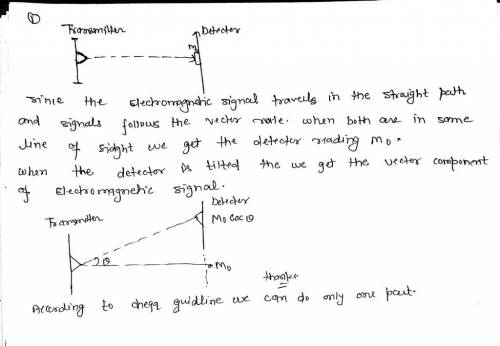 ①
Transmitter Detector
M
Sinie the electromagnetic signal travels in the straight path
and signals follows the vector rule. when both are in some
line of sidght we get the detector reading M0.
when the detector is tilted the we get the vector component
of electromagnetic signal.
Transmitter Detector
M0 cosθ
θ
M0
thankee
According to cheqq guidline we can do only one part.